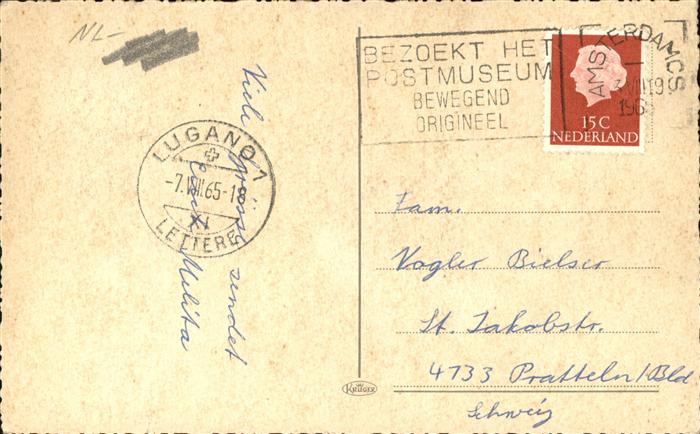 NL-
BEZOEKT HET
POSTMUSEUM
BEWEGEND
ORIGINEEL
AMSTERDAM CS
15 C
NEDERLAND
LUGANO 1
-7.VIII.65-18
LETTERE
Viele Grüsse sendet
Euch Melita
Fam.
Vogler Bielser
St. Jakobstr.
4733 Pratteln/Bld
Schweiz
KRÜGER